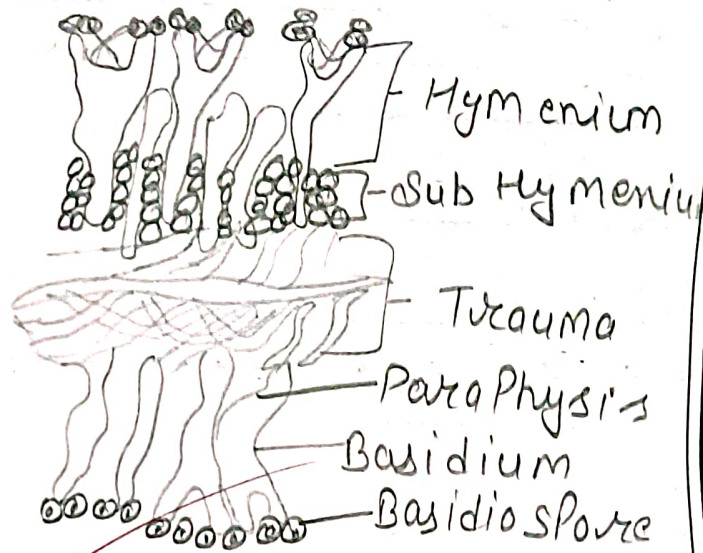 Hymenium
Sub Hymeniu
Trauma
ParaPhysis
Basidium
BasidiosPore